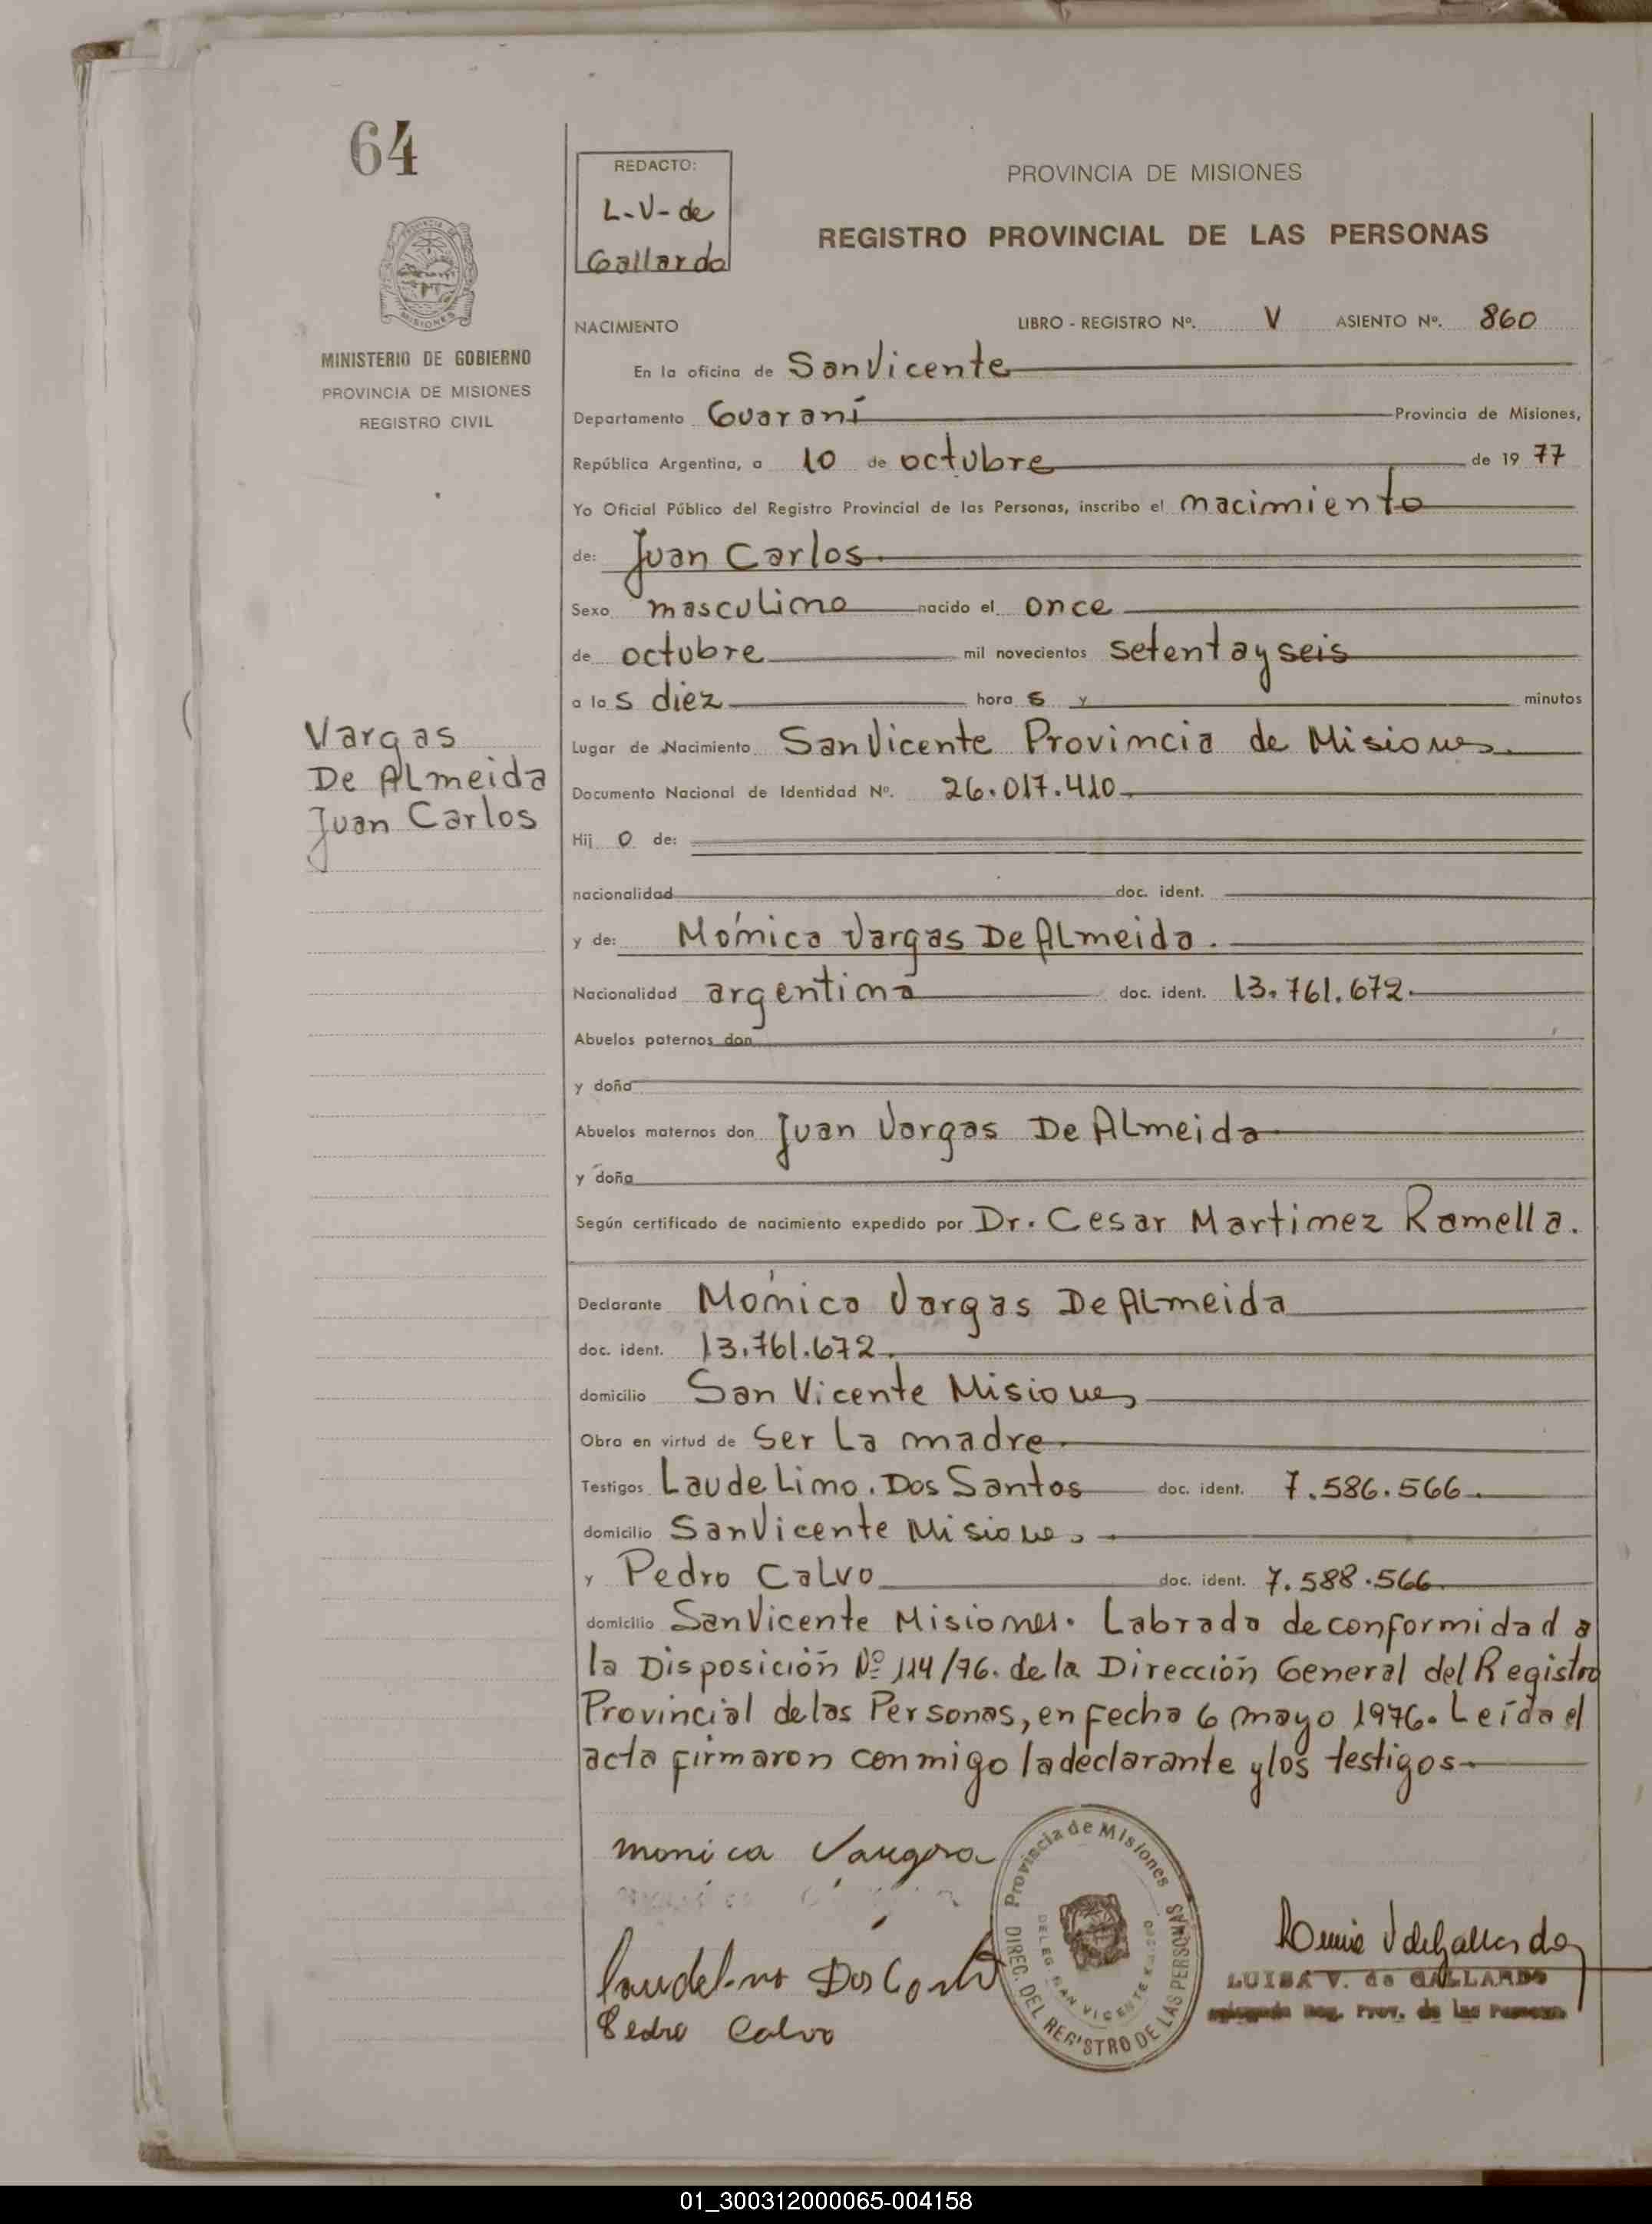 64
REDACTO:
L-V-de
Gallardo
PROVINCIA DE MISIONES
REGISTRO PROVINCIAL DE LAS PERSONAS
MISIONES
MINISTERIO DE GOBIERNO
PROVINCIA DE MISIONES
REGISTRO CIVIL
NACIMIENTO LIBRO - REGISTRO Nº. V ASIENTO Nº. 860
En la oficina de San Vicente
Departamento Guaraní Provincia de Misiones,
República Argentina, a 10 de octubre de 19 77
Yo Oficial Público del Registro Provincial de las Personas, inscribo el nacimiento
de: Juan Carlos.
Sexo masculino nacido el once
de octubre mil novecientos setenta y seis
a las diez horas y minutos
Vargas
De Almeida
Juan Carlos
Lugar de Nacimiento San Vicente Provincia de Misiones
Documento Nacional de Identidad Nº. 26.017.410
Hij o de:
nacionalidad doc. ident.
y de: Mónica Vargas De Almeida.
Nacionalidad argentina doc. ident. 13.761.672.
Abuelos paternos don
y doña
Abuelos maternos don Juan Vargas De Almeida
y doña
Según certificado de nacimiento expedido por Dr. Cesar Martinez Ramella.
Declarante Mónica Vargas De Almeida
doc. ident. 13.761.672.
domicilio San Vicente Misiones
Obra en virtud de ser la madre.
Testigos Laudelino. Dos Santos doc. ident. 7.586.566.
domicilio San Vicente Misiones
y Pedro Calvo doc. ident. 7.588.566
domicilio San Vicente Misiones. Labrada de conformidad a
la Disposición Nº 114/76. de la Dirección General del Registro
Provincial de las Personas, en fecha 6 mayo 1976. Leída el
acta firmaron conmigo la declarante y los testigos
monica Vargas
Laudelino Dos
Pedro Calvo
Provincia de Misiones
DIREC. DEL REGISTRO DE LAS PERSONAS
DELEG. SAN VICENTE
V de Gallardo
LUISA V. de GALLARDO
Reg. Prov. de las Personas
01_300312000065-004158